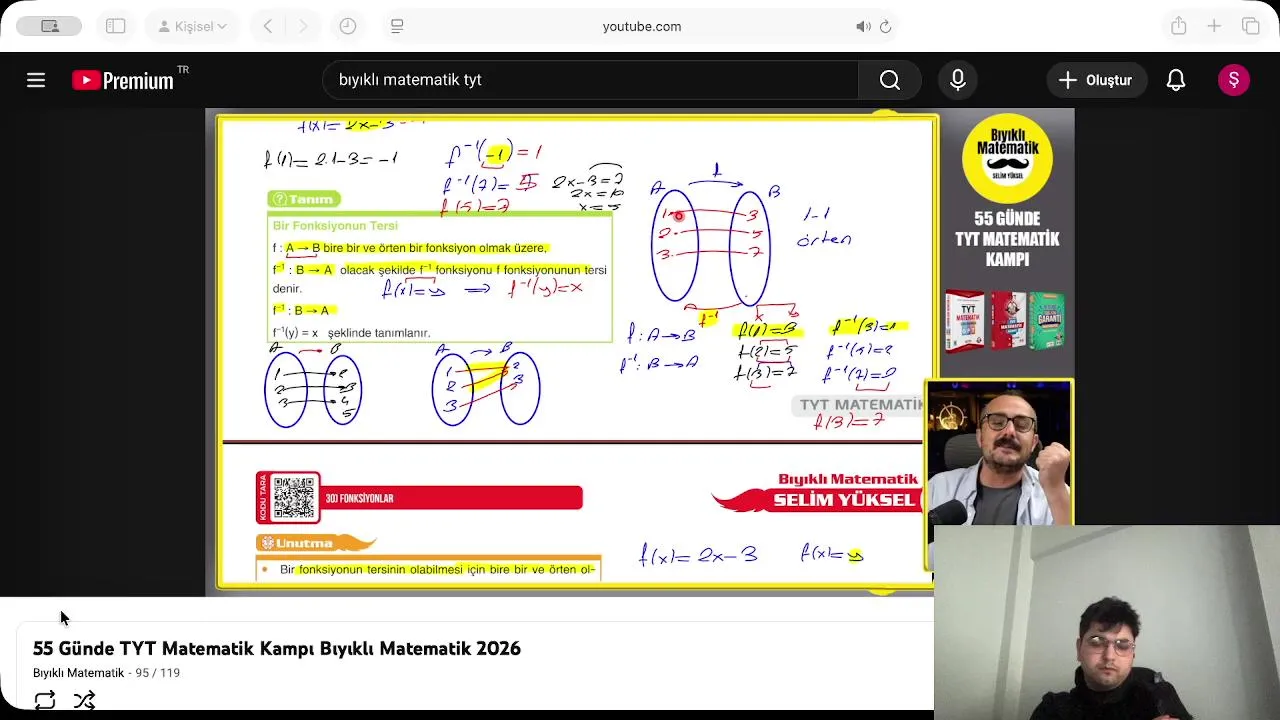 Kişisel
youtube.com
Premium TR
bıyıklı matematik tyt
Oluştur
Ş
f(x)= 2x-3
f(1)= 2.1-3= -1
f⁻¹(-1)= 1
f⁻¹(7)= 5
f(5)=7
2x-3=7
2x=10
x=5
Tanım
Bir Fonksiyonun Tersi
f : A → B bire bir ve örten bir fonksiyon olmak üzere,
f⁻¹ : B → A olacak şekilde f⁻¹ fonksiyonu f fonksiyonunun tersi
denir.
f(x)=y ⟹ f⁻¹(y)=x
f⁻¹ : B → A
f⁻¹(y) = x şeklinde tanımlanır.
A B
1 2
2 3
3 4
5
A B
1 2
2 3
3
f
A B
1 3
2 5
3 7
1-1
örten
f⁻¹
x y
f: A→B
f⁻¹: B→A
f(1)=3
f(2)=5
f(3)=7
f⁻¹(3)=1
f⁻¹(5)=2
f⁻¹(7)=
TYT MATEMATİK
f(3)=7
KODU TARA
30) FONKSİYONLAR
Bıyıklı Matematik
SELİM YÜKSEL
Unutma
• Bir fonksiyonun tersinin olabilmesi için bire bir ve örten ol-
f(x)= 2x-3
f(x)= y
Bıyıklı
Matematik
SELİM YÜKSEL
55 GÜNDE
TYT MATEMATİK
KAMPI
55 Günde TYT Matematik Kampı Bıyıklı Matematik 2026
Bıyıklı Matematik - 95 / 119